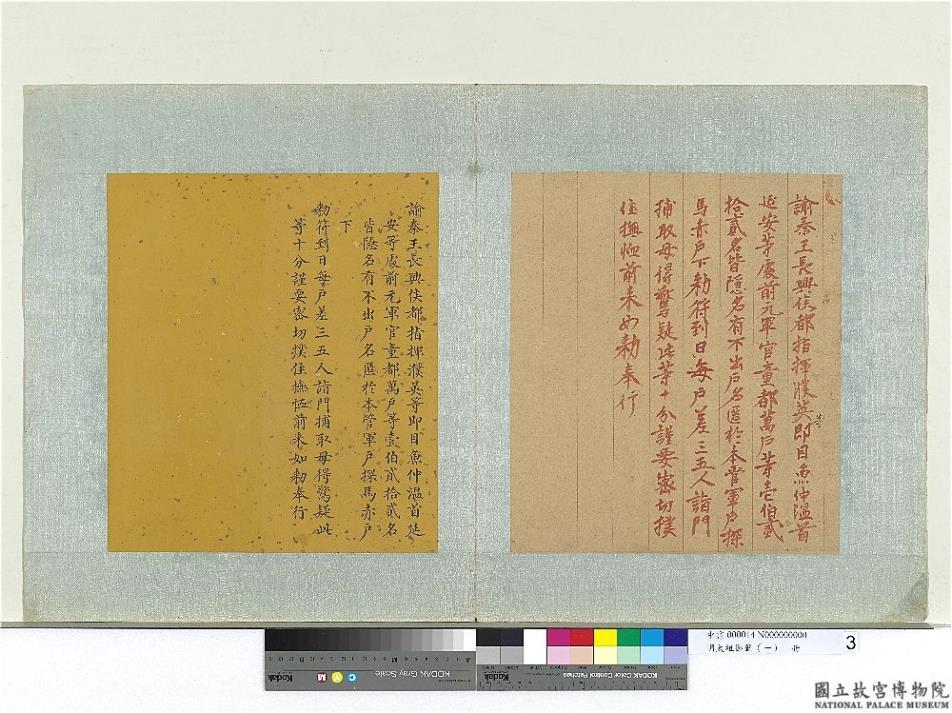 諭秦王長興侯都指揮濮英等即目魚仲溫首
延安等處前元軍官童都萬戶等壱伯貳
拾貳名皆隱名有不出戶名匿於本管軍戶探
馬赤戶下勅符到日每戶差三五人詣門
捕取毋得驚疑此等十分謹要密切撲
住撫恤前来如勅奉行
諭秦王長興侯都指揮濮英等即目魚仲溫首延
安等處前元軍官童都萬戶等壹伯貳拾貳名
皆隱名有不出戶名匿於本管軍戶探馬赤戶
下
勅符到日每戶差三五人詣門捕取毋得驚疑此
等十分謹要密切撲住撫恤前来如勅奉行
KODAK Gray Scale
Kodak
C
Y
M
A
KODAK Color Control Patches
Kodak
000014 N000000000
明太祖御筆（一） 冊
3
國立故宮博物院
NATIONAL PALACE MUSEUM